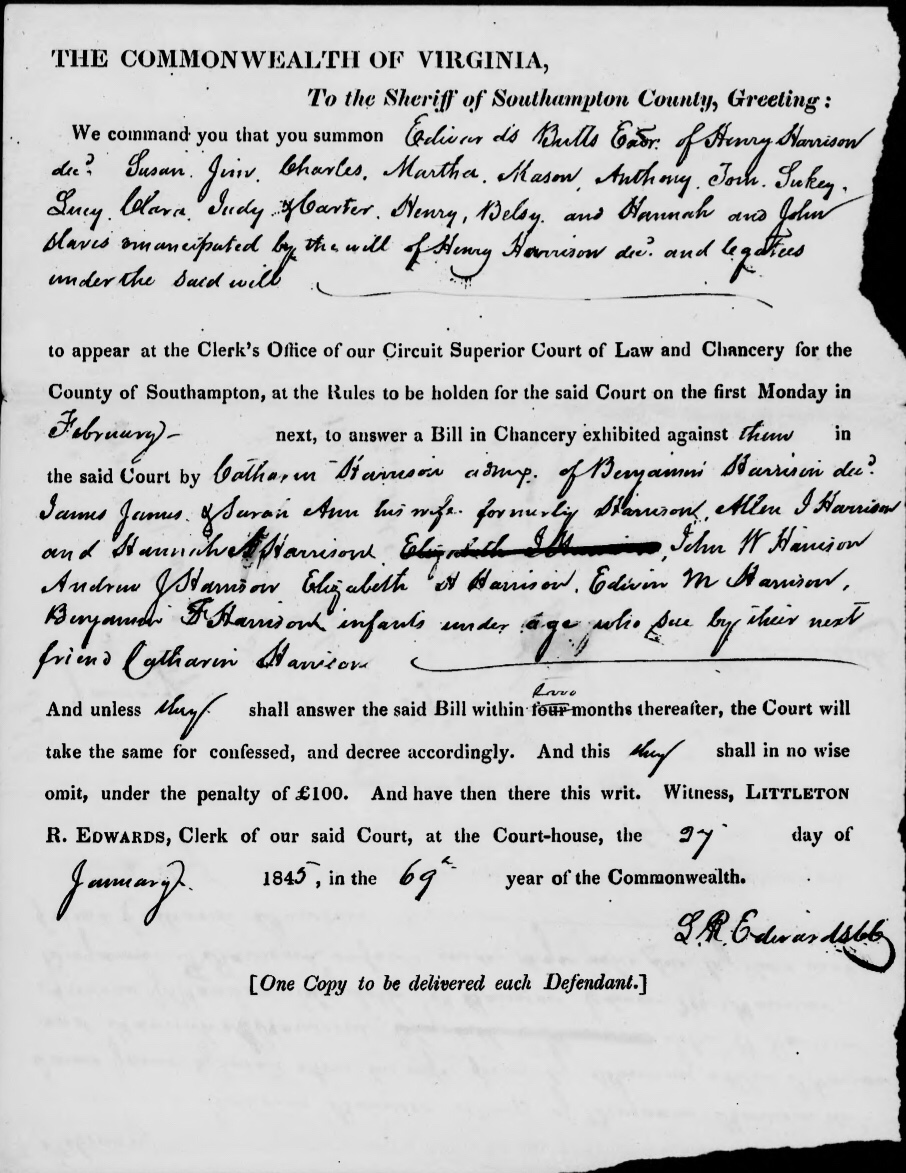 THE COMMONWEALTH OF VIRGINIA,
To the Sheriff of Southampton County, Greeting:
We command you that you summon Edwards Butts Exor. of Henry Harrison
decd. Susan. Jim. Charles. Martha. Mason, Anthony. Tom. Sukey.
Lucy. Clara. Judy & Carter. Henry, Betsy. and Hannah and John
slaves emancipated by the will of Henry Harrison decd. and legatees
under the said will
to appear at the Clerk's Office of our Circuit Superior Court of Law and Chancery for the
County of Southampton, at the Rules to be holden for the said Court on the first Monday in
February next, to answer a Bill in Chancery exhibited against them in
the said Court by Catharin Harrison admx. of Benjamin Harrison decd.
James James. & Sarah Ann his wife. formerly Harrison, Allen J Harrison
and Hannah Harrison Elizabeth J Harrison, John W Harrison
Andrew J Harrison Elizabeth A Harrison, Edwin M Harrison,
Benjamin F Harrison infants under age who sue by their next
friend Catharin Harrison
two
And unless they shall answer the said Bill within four months thereafter, the Court will
take the same for confessed, and decree accordingly. And this they shall in no wise
omit, under the penalty of £100. And have then there this writ. Witness, LITTLETON
R. EDWARDS, Clerk of our said Court, at the Court-house, the 27 day of
January 1845, in the 69th year of the Commonwealth.
L. R. Edwards CC
[One Copy to be delivered each Defendant.]